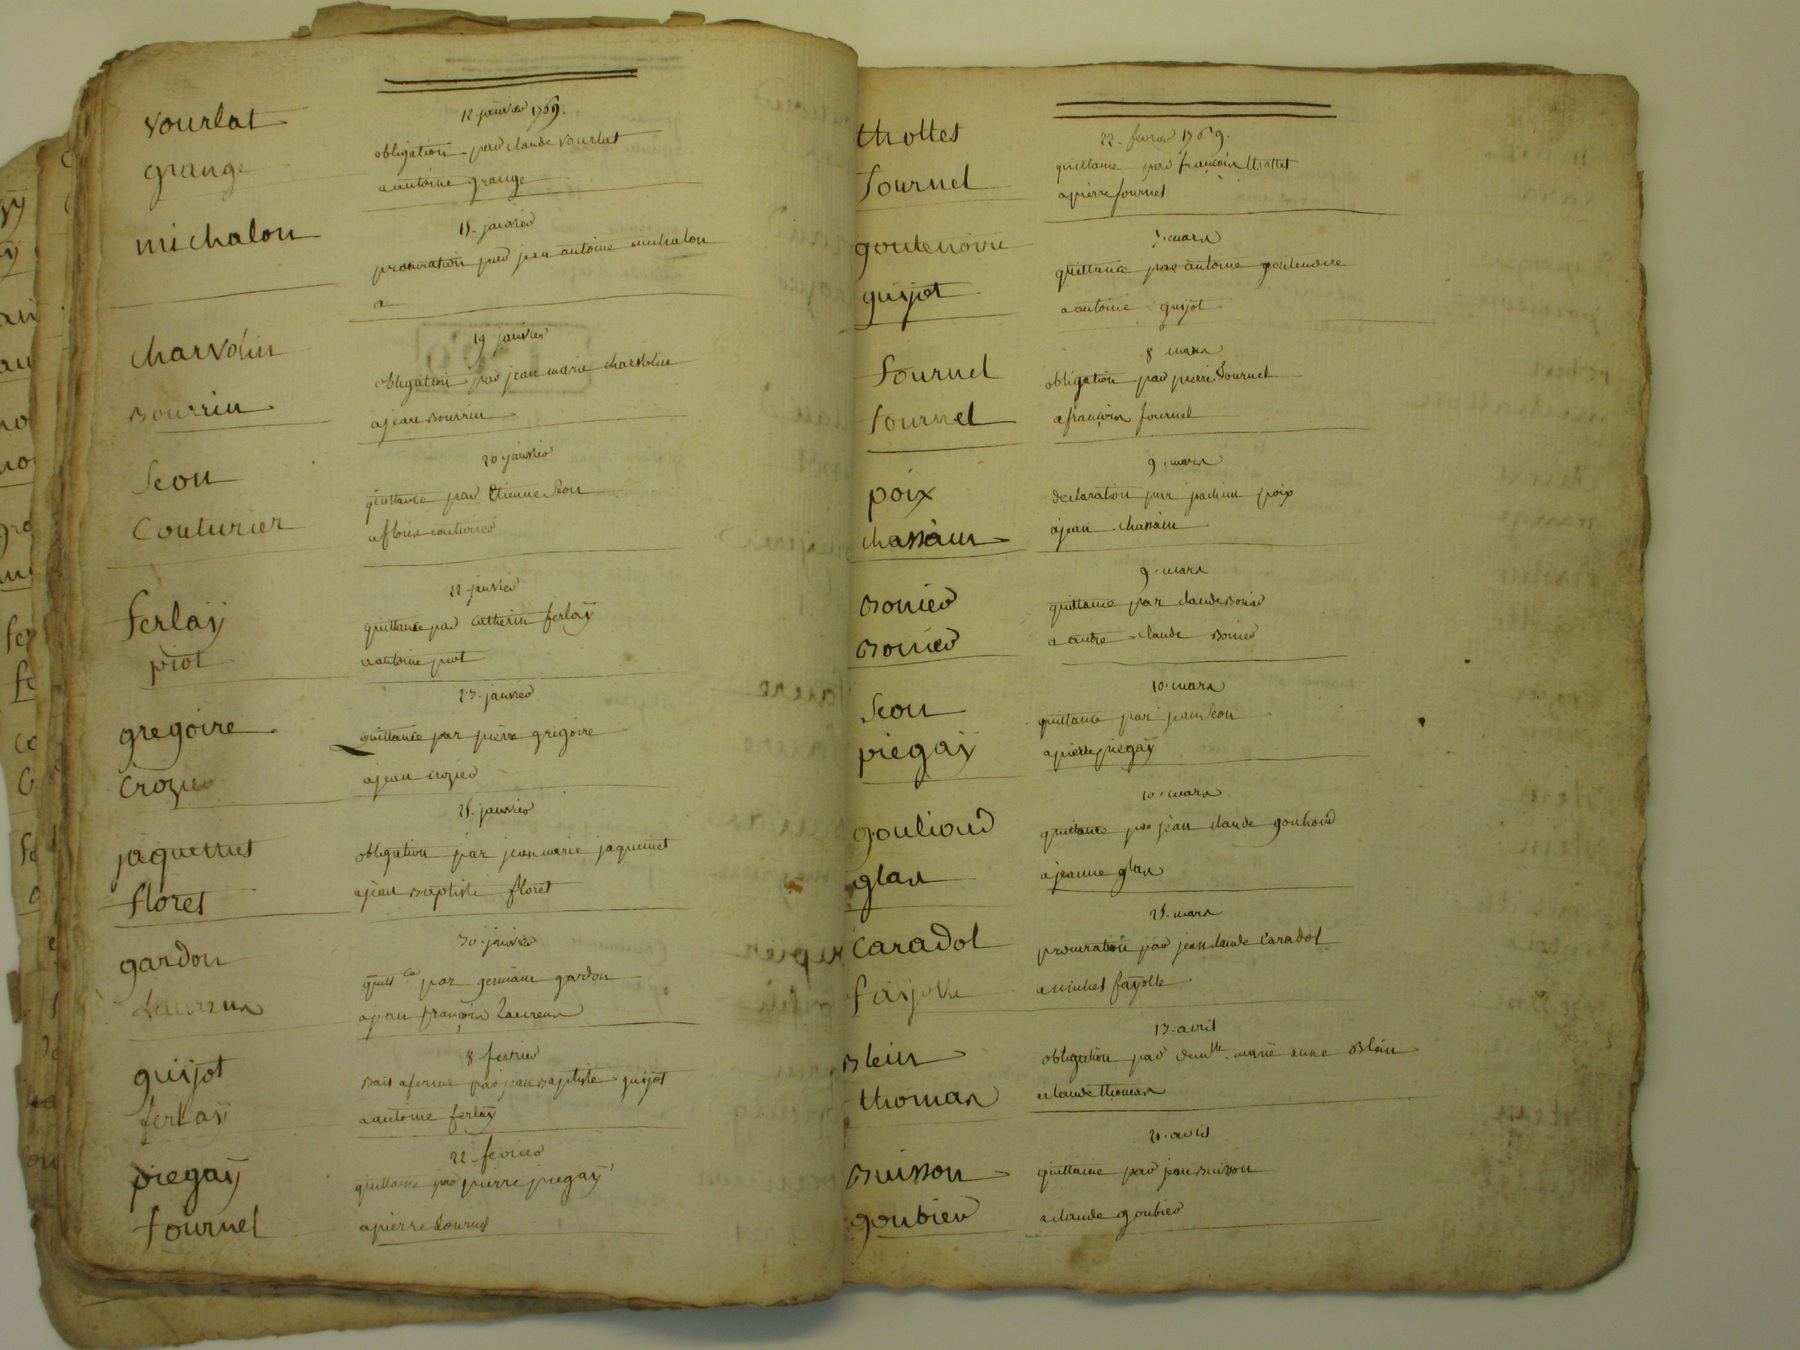 12 janvier 1769.
vourlat
obligation par claude vourlat
grange
a antoine grange
15. janvier
michalon
procuration par jean antoine michalon
a
19 janvier
charvolin
obligation par jean marie charvolin
Bourrin
a jean Bourrin
20 janvier
Seon
quittance par Etienne Seon
Couturier
couturier
22 janvier
ferlaÿ
quittance par catherin ferlaÿ
piot
a antoine piot
23. janvier
gregoire
quittance par pierre gregoire
Crozier
a jean crozier
25. janvier
jaquemet
obligation par jean marie jaquemet
floret
a jean Baptiste floret
30 janvier
gardon
quitt.ce par germain gardon
Laurens
a jean françois Laurens
8 fevrier
guijot
Bail a ferme par jean Baptiste guijot
ferlaÿ
a antoine ferlaÿ
22 fevrier
piegaÿ
quittance par pierre piegaÿ
fournel
a pierre fournel
22. fevrier 1769.
thollet
quittance par françois thollet
fournel
a pierre fournel
mars
goutenoire
quittance par antoine goutenoire
guijot
a antoine guijot
8 mars
fournel
obligation par pierre fournel
fournel
a françois fournel
9. mars
poix
declaration par joachim poix
chassain
a jean chassain
9. mars
Bonier
quittance par claude Bonier
Bonier
a autre claude Bonier
10. mars
Seon
quittance par jean Seon
piegaÿ
a pierre piegaÿ
10. mars
goulioud
quittance par jean claude goulioud
glas
a jeanne glas
25. mars
Caradot
procuration par jean claude Caradot
faÿolle
a michel faÿolle
13. avril
Blein
obligation par dem.lle marie anne Blein
thomas
a claude thomas
21. avril
Buisson
quittance par jean Buisson
goubier
a claude goubier